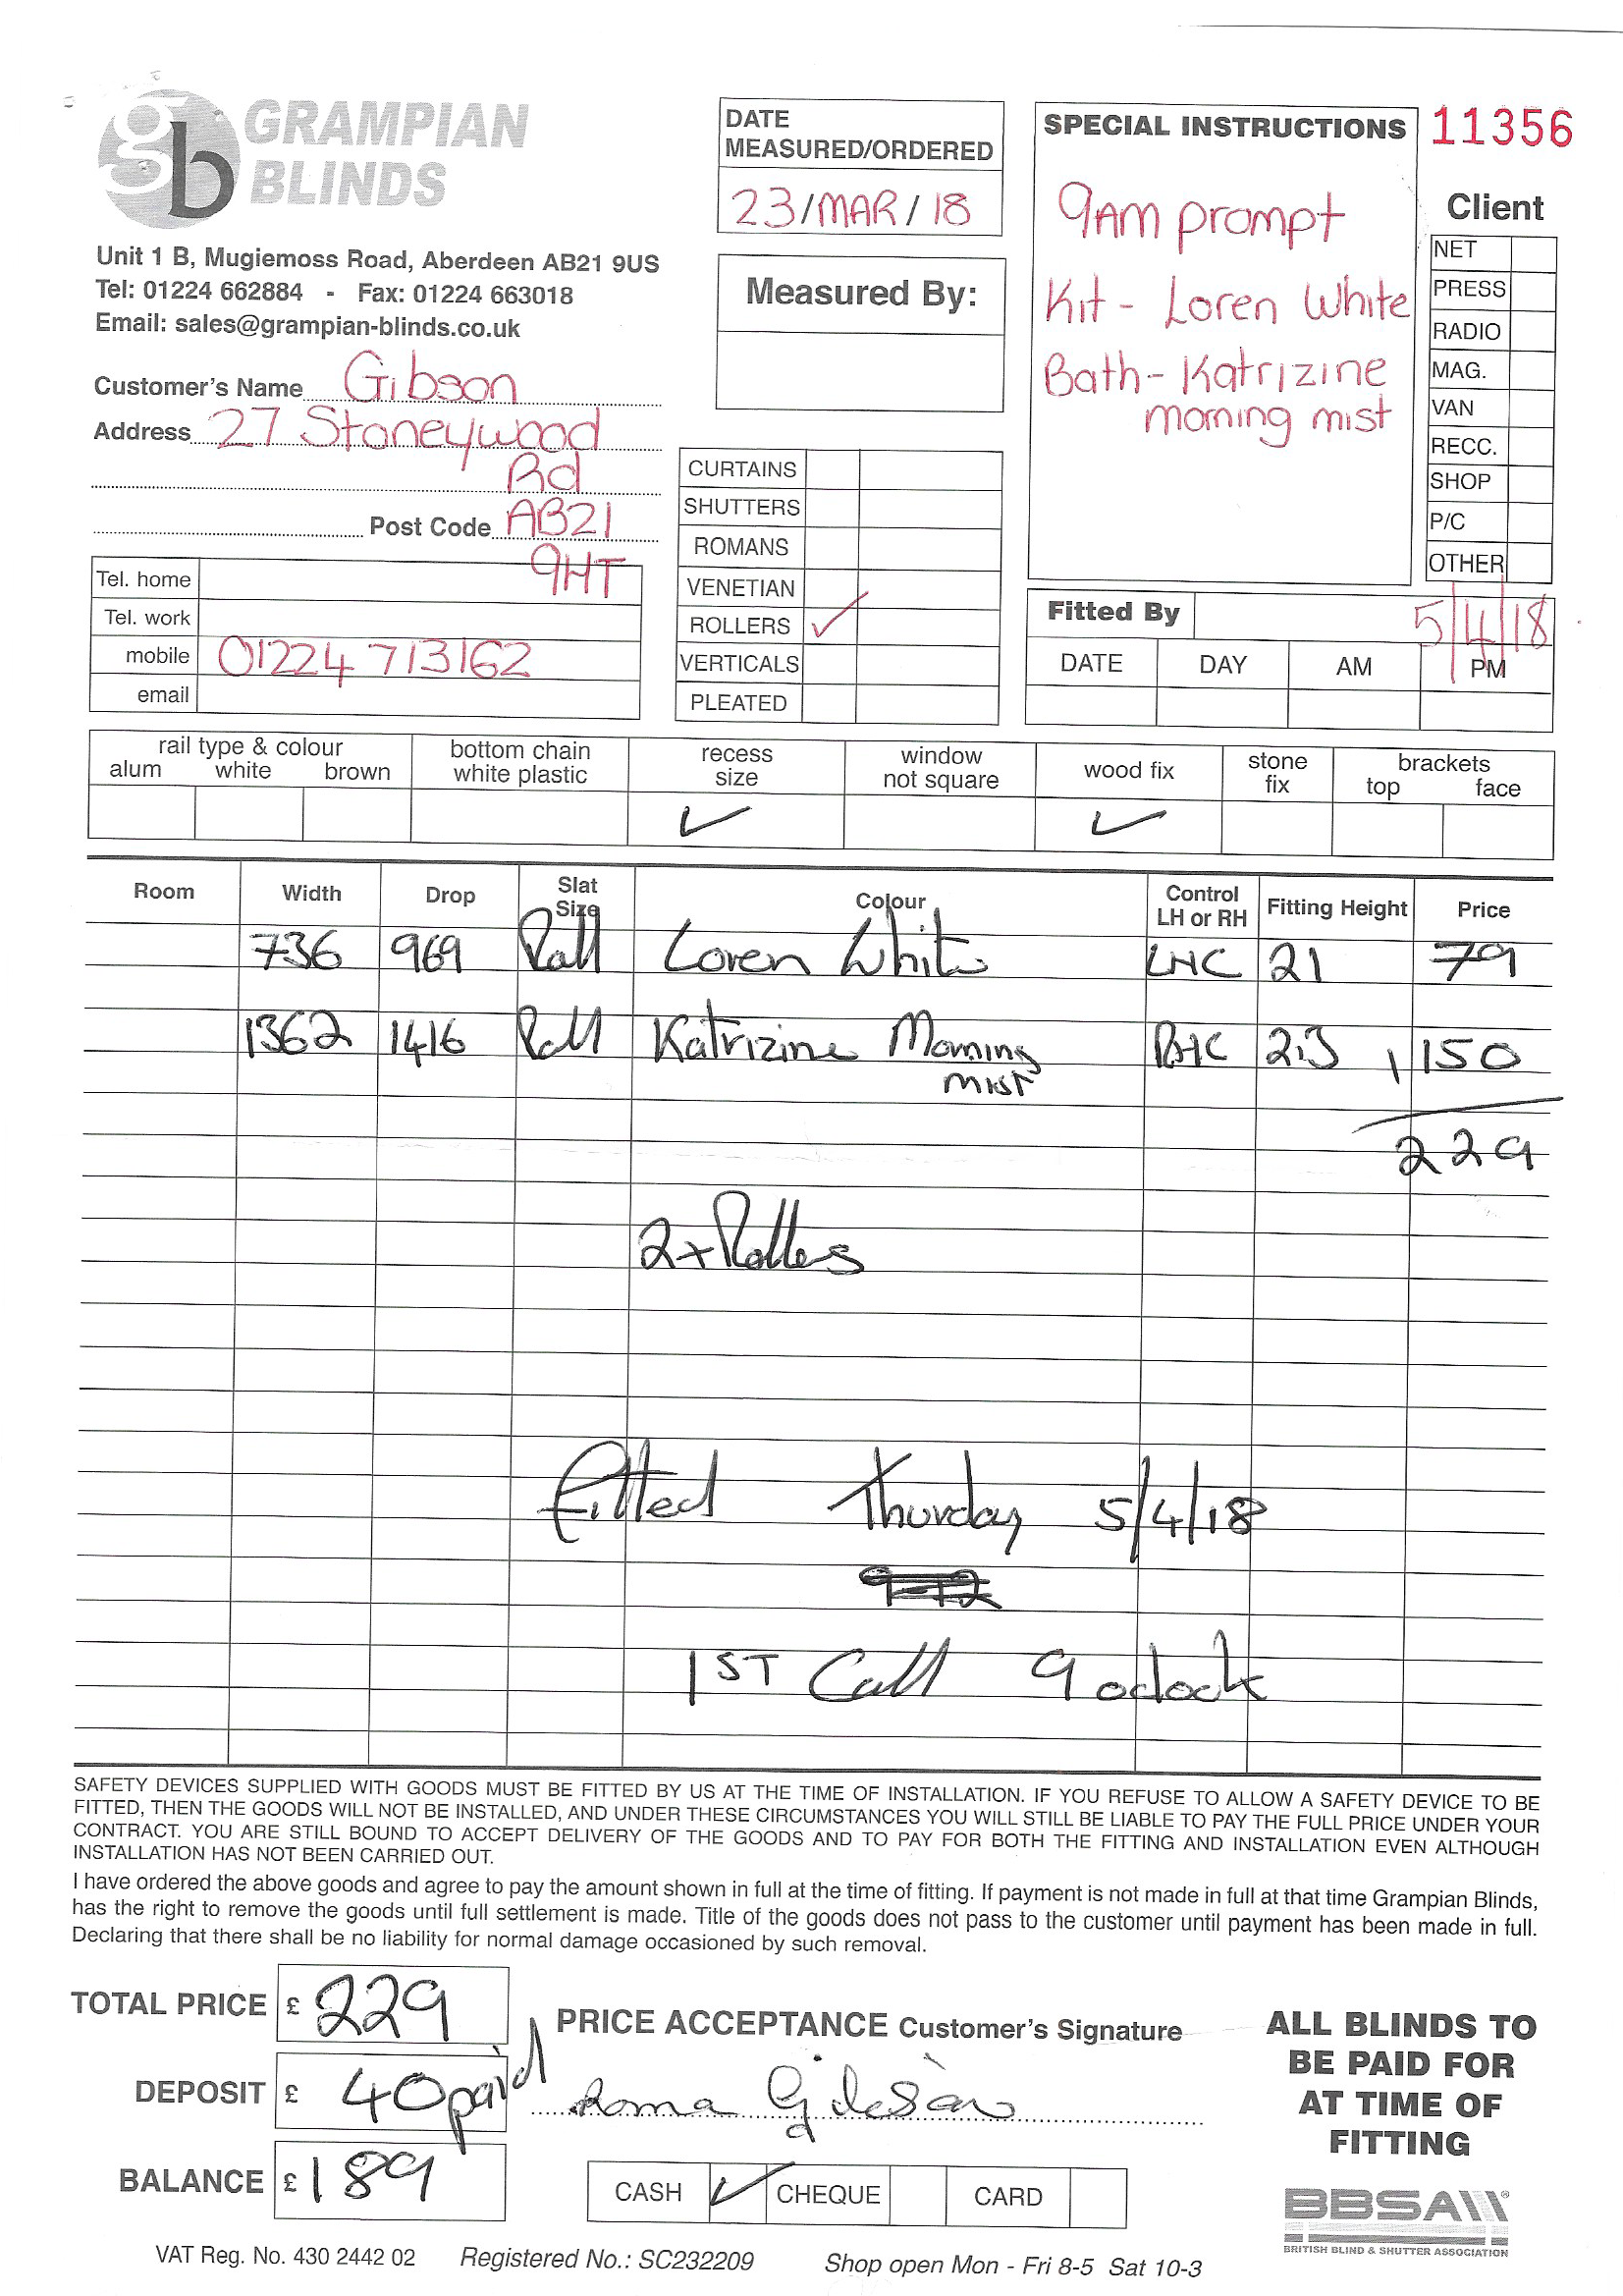 gb GRAMPIAN BLINDS
Unit 1 B, Mugiemoss Road, Aberdeen AB21 9US
Tel: 01224 662884 - Fax: 01224 663018
Email: sales@grampian-blinds.co.uk
Customer's Name Gibson
Address 27 Stoneywood
Rd
Post Code AB21
9HT
Tel. home
Tel. work
mobile 01224 713162
email
DATE
MEASURED/ORDERED
23/MAR/18
Measured By:
CURTAINS
SHUTTERS
ROMANS
VENETIAN
ROLLERS ✓
VERTICALS
PLEATED
SPECIAL INSTRUCTIONS
9AM prompt
Kit - Loren White
Bath - Katrizine
morning mist
11356
Client
NET
PRESS
RADIO
MAG.
VAN
RECC.
SHOP
P/C
OTHER
Fitted By 5/4/18
DATE DAY AM PM
rail type & colour
alum white brown
bottom chain
white plastic
recess
size
✓
window
not square
wood fix
✓
stone
fix
brackets
top face
Room Width Drop Slat Size Colour Control LH or RH Fitting Height Price
736 969 Roll Loren White LHC 21 79
1362 1416 Roll Katrizine Morning RHC 2.3 150
mist
229
2x Rollers
fitted Thursday 5/4/18
1ST Call 9 oclock
SAFETY DEVICES SUPPLIED WITH GOODS MUST BE FITTED BY US AT THE TIME OF INSTALLATION. IF YOU REFUSE TO ALLOW A SAFETY DEVICE TO BE
FITTED, THEN THE GOODS WILL NOT BE INSTALLED, AND UNDER THESE CIRCUMSTANCES YOU WILL STILL BE LIABLE TO PAY THE FULL PRICE UNDER YOUR
CONTRACT. YOU ARE STILL BOUND TO ACCEPT DELIVERY OF THE GOODS AND TO PAY FOR BOTH THE FITTING AND INSTALLATION EVEN ALTHOUGH
INSTALLATION HAS NOT BEEN CARRIED OUT.
I have ordered the above goods and agree to pay the amount shown in full at the time of fitting. If payment is not made in full at that time Grampian Blinds,
has the right to remove the goods until full settlement is made. Title of the goods does not pass to the customer until payment has been made in full.
Declaring that there shall be no liability for normal damage occasioned by such removal.
TOTAL PRICE £ 229
DEPOSIT £ 40 paid
BALANCE £ 189
PRICE ACCEPTANCE Customer's Signature
Roma Gibson
CASH ✓ CHEQUE CARD
ALL BLINDS TO
BE PAID FOR
AT TIME OF
FITTING
BBSA
BRITISH BLIND & SHUTTER ASSOCIATION
VAT Reg. No. 430 2442 02 Registered No.: SC232209 Shop open Mon - Fri 8-5 Sat 10-3